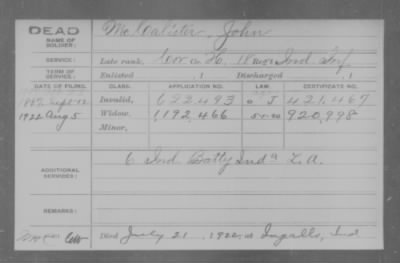 DEAD
NAME OF SOLDIER: McCalister, John
SERVICE: Late rank, Co. H, 18 Reg't Ind Inf
TERM OF SERVICE: Enlisted , 1 Discharged , 1
DATE OF FILING. CLASS. APPLICATION NO. LAW. CERTIFICATE NO.
1887 Sept 12 Invalid, 622,493 J 421,467
1922 Aug 5 Widow, 1,192,466 920,998
Minor,
ADDITIONAL SERVICES: 6 Ind Batty Ind a L. A.
REMARKS: Died July 21, 1922, at Ingalls, Ind